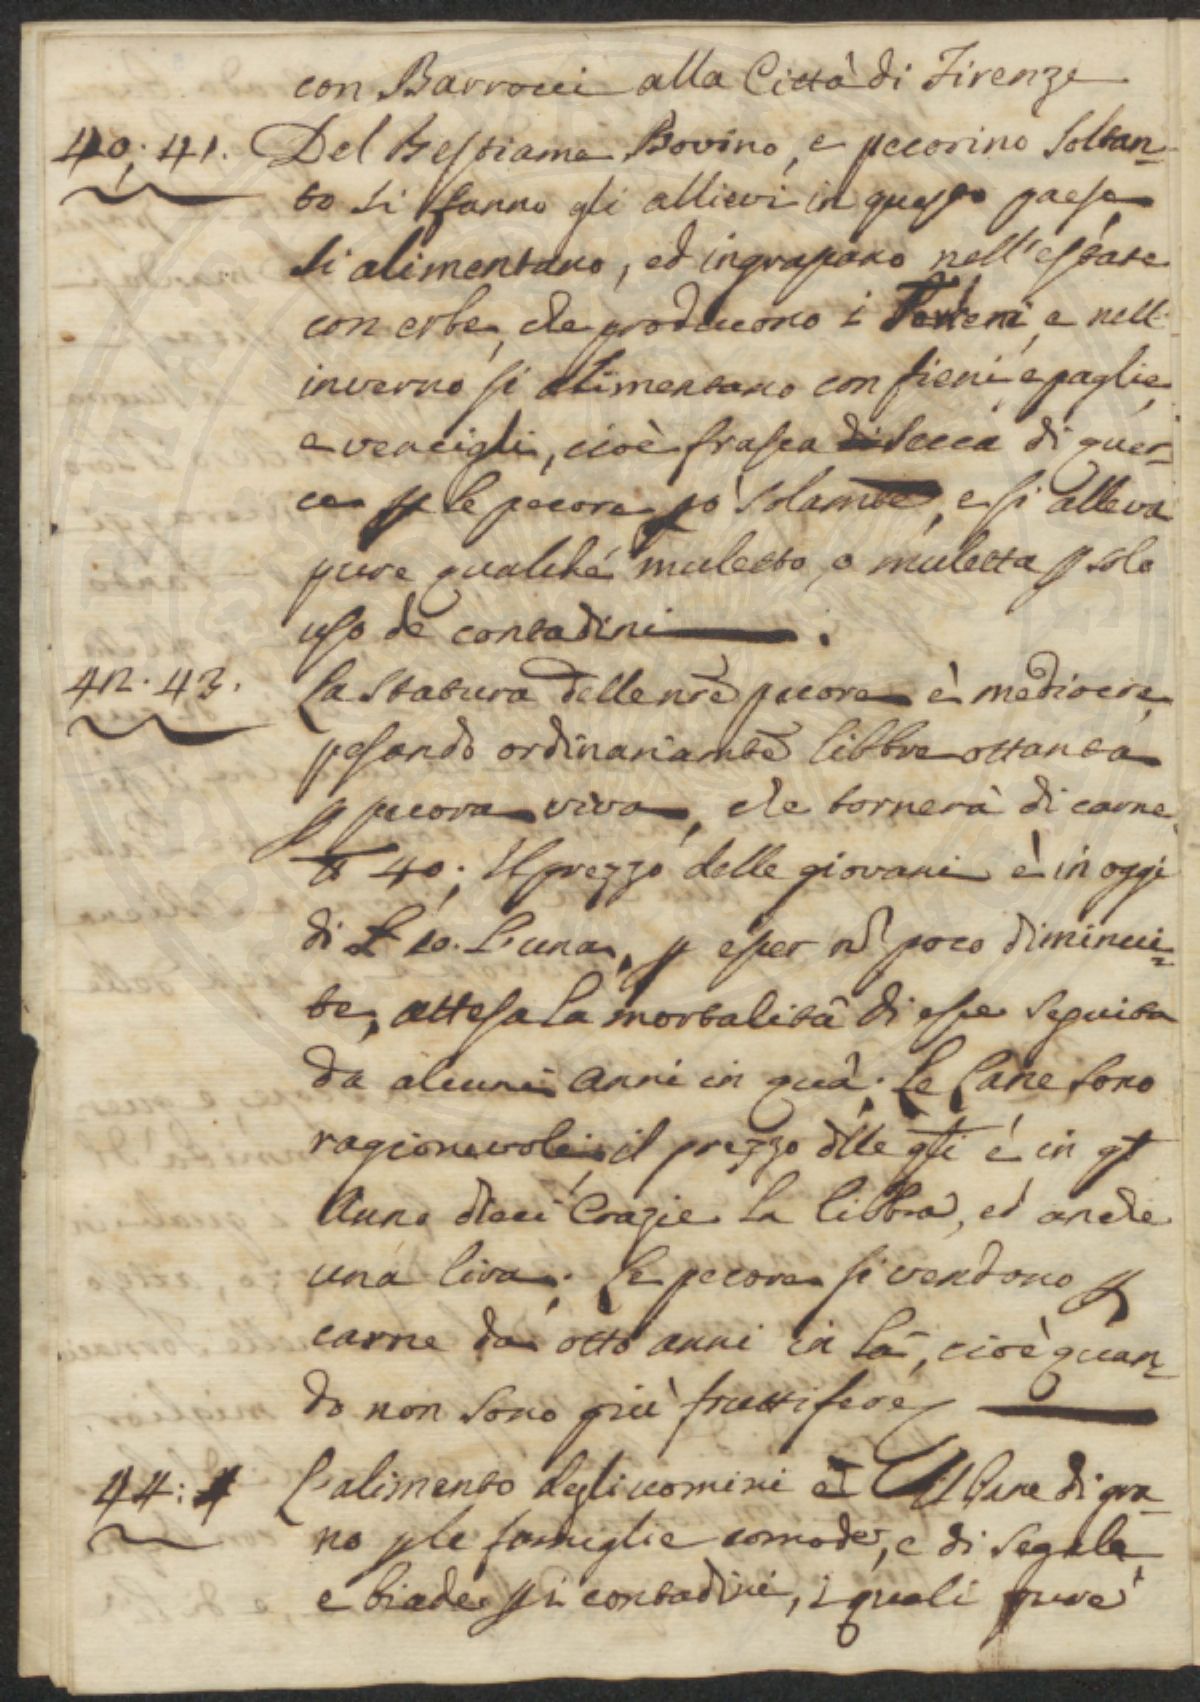 con Barrocci alla Città di Firenze
40; 41. Del Bestiame Bovino, e pecorino soltan-
to si fanno gli allievi in questo paese
si alimentano, ed ingrassano nell'estate
con erbe, che producono i Terreni, e nell'
inverno si alimentano con fieni, e paglie,
e vencigli, cioè frasca di secca di quer-
ce p le pecore pò solamte, e si alleva
pure qualche muletto, o muletta p solo
uso de contadini.
42. 43. La statura delle nre pecore è mediocre,
pesando ordinariamte libbre ottanta
p pecora viva, che tornerà di carne
lb 40; Il prezzo delle giovani è in oggi
di £ 10. l'una, p esser nõ poco diminui-
te, attesa la mortalità di esse seguita
da alcuni anni in quà; Le Lane sono
ragionevoli; il prezzo dlle qli è in qt
Anno dieci Crazie la libbra, ed anche
una lira; Le pecore si vendono p
carne da otto anni in là, cioè quan-
do non sono più fruttifere
44: L'alimento degli uomini è Il Pane di gra-
no p le famiglie comode, e di segale
e biade p i contadini, i quali pure